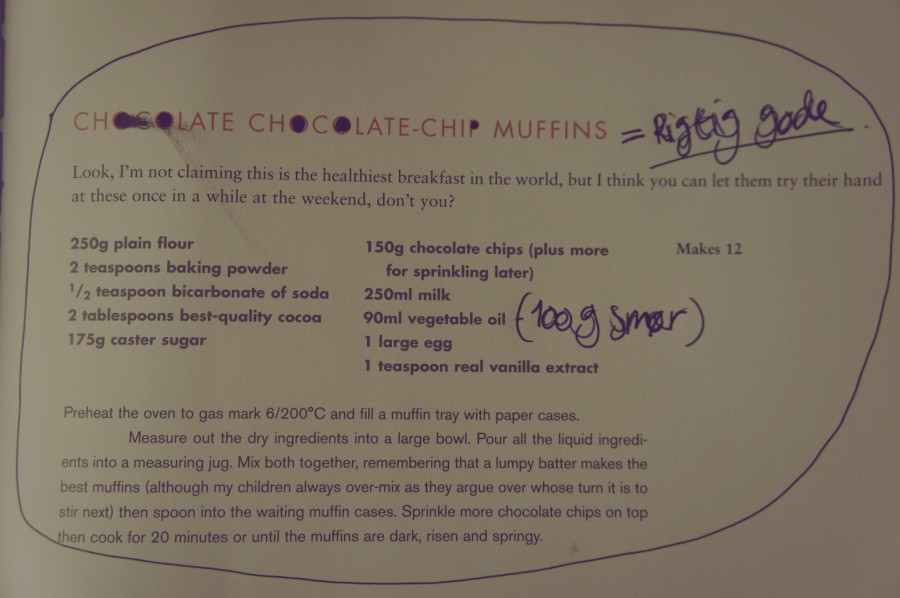 CHOCOLATE CHOCOLATE-CHIP MUFFINS = Rigtig gode
Look, I'm not claiming this is the healthiest breakfast in the world, but I think you can let them try their hand
at these once in a while at the weekend, don't you?
250g plain flour
2 teaspoons baking powder
1/2 teaspoon bicarbonate of soda
2 tablespoons best-quality cocoa
175g caster sugar
150g chocolate chips (plus more
for sprinkling later)
250ml milk
90ml vegetable oil (100g smør)
1 large egg
1 teaspoon real vanilla extract
Makes 12
Preheat the oven to gas mark 6/200°C and fill a muffin tray with paper cases.
Measure out the dry ingredients into a large bowl. Pour all the liquid ingredi-
ents into a measuring jug. Mix both together, remembering that a lumpy batter makes the
best muffins (although my children always over-mix as they argue over whose turn it is to
stir next) then spoon into the waiting muffin cases. Sprinkle more chocolate chips on top
then cook for 20 minutes or until the muffins are dark, risen and springy.